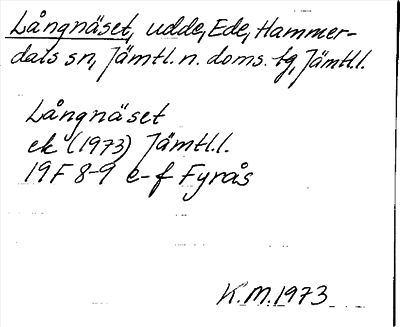 Långnäset, udde, Ede, Hammer-
dals sn, Jämtl. n. doms. tg, Jämtl.l.
Långnäset
ek (1973) Jämtl.l.
19F 8-9 e-f Fyrås
K.M.1973